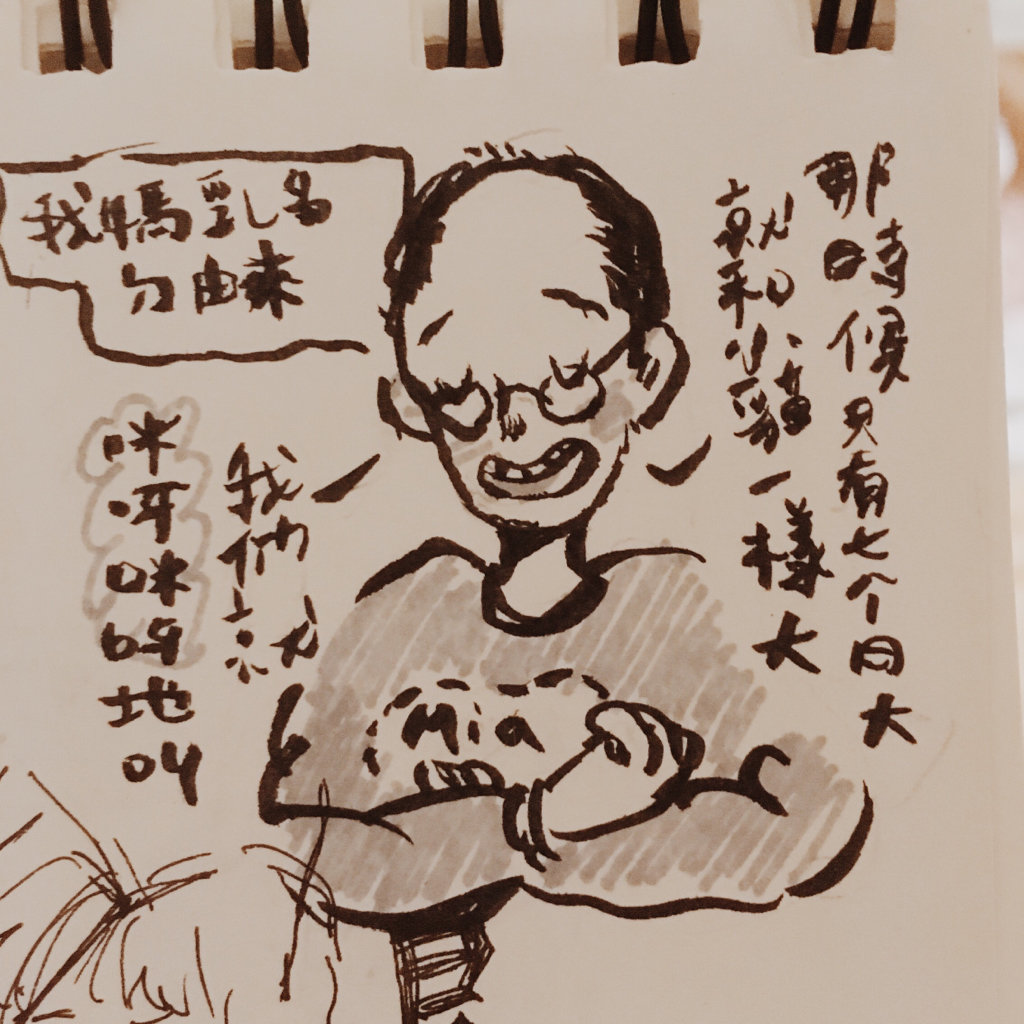 我媽乳名
ㄉ由來
那時候只有七个月大
就和小貓一樣大
我們就
咪呀咪呀地叫
Mia